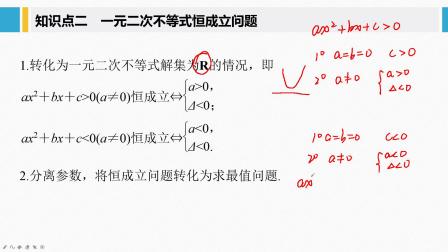 知识点二 一元二次不等式恒成立问题
1.转化为一元二次不等式解集为R的情况，即
ax²+bx+c>0(a≠0)恒成立⇔{a>0，
Δ<0；
ax²+bx+c<0(a≠0)恒成立⇔{a<0，
Δ<0.
2.分离参数，将恒成立问题转化为求最值问题.
ax²+bx+c>0
1° a=b=0 c>0
2° a≠0 {a>0
Δ<0
1° a=b=0 c<0
2° a≠0 {a<0
Δ<0
ax